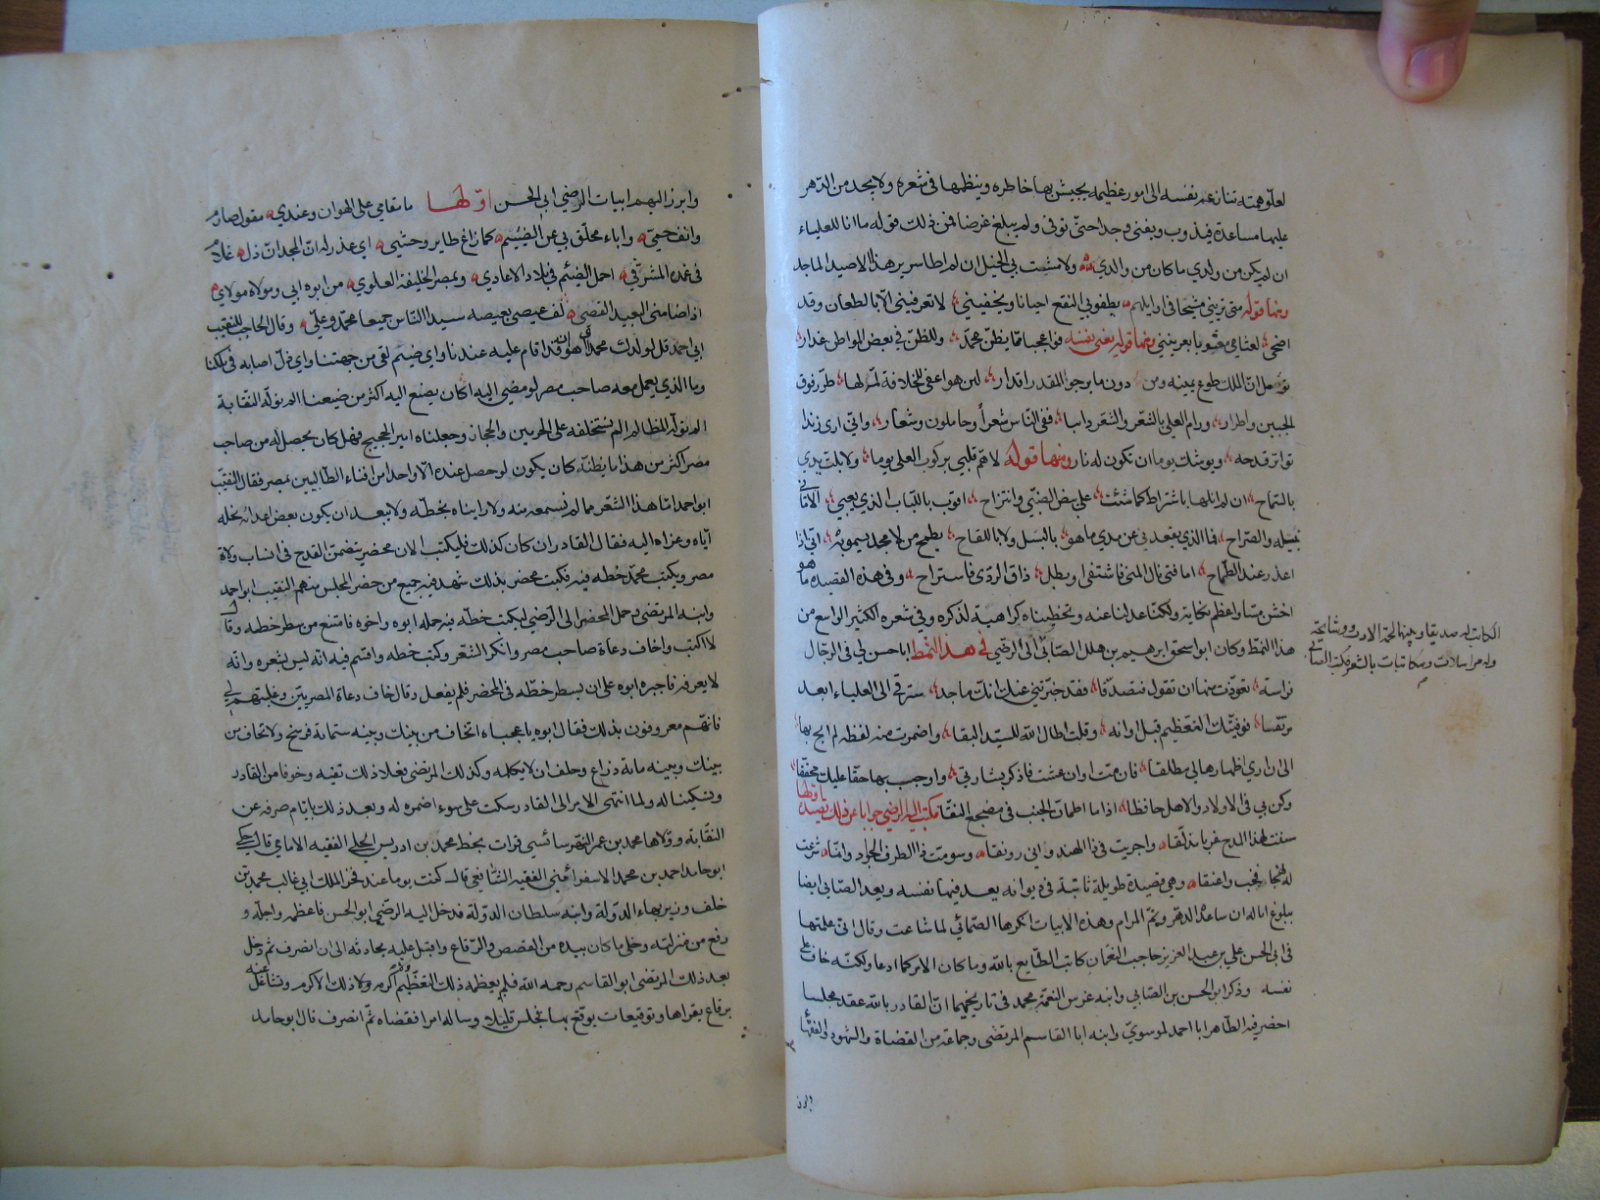 لعلو همته تنازعه نفسه الى امور عظيمة يجيش بها خاطره وينظمها في شعره ولا يجد من الدهر
عليها مساعدة فيذوب ويفنى وجدا حتى توفى ولم يبلغ غرضا فمن ذلك قوله ما انا للعلياء
ان لم يكن من ولدي ما كان من والدي ولا مشت بي الخيل ان لم اطا سرير هذا الاصيد الماجد
ومنها قوله متى تريني مشيحا في اوايلهم يطفو بي النقع احيانا ويخفيني لا تعرفيني الا بالطعان وقد
اضحى لثامي معصوبا بعرنيني ومنها قوله يعني نفسه فوا عجبا مما يظن محمد وللظن في بعض المواطن غدار
يؤمل ان الملك طوع يمينه ومن دون ما يرجو المقدر اقدار لئن هو اعفى للخلافة لمة لها طرر فوق
الجبين واطرار ورام العلى بالشعر والشعر دايبا ففي الناس شعرا وخاملون وشعار واني ارى زندا
تواتر قدحه ويوشك يوما ان تكون له نار ومنها قوله لا هم قلبي بركوب العلى يوما ولا بلت يدي
بالسماح ان لم انلها باشتراط كما شئت على بيض الظبى وانتزاح افوت باللباب الذي يعيي الاماني
نيله والصراح فما الذي يقعدني عن مدي ما هو بالبسل ولا باللقاح يطمح من لا مجد يسمو به اني اذا
اعذر عند الطماح اما فتى نال المنى فاشتفى او بطل ذاق الردى فاستراح وفي هذه القصيده ما هو
اخشن مسا واعظم نكاية ولكنا عدلنا عنه وتخطيناه كراهية لذكره وفي شعره الكثير الواسع من
هذا النمط وكان ابو اسحق ابرهيم بن هلل الصابئ الى الرضي في هذا النمط ابا حسن لي في الرجال
فراسة تعودت منها ان تقول فتصدقا فقد خبرتني عنك انك ماجد سترقى الى العلياء ابعد
مرتقا فوفيتك التعظيم قبل اوانه وقلت اطال الله للسيد البقا واضمرت منه لفظة لم ابح بها
الى ان ارى اظهارها لي مطلقا فان مت او ان عشت فاذكر بشارتي واوجب بها حقا عليك محققا
وكن لي في الاولاد والاهل حافظا اذا ما اطمان الجنب في مضجع النقا فكتب اليه الرضي جوابا عن ذلك قصيدة اولها
سننت لهذا الدح غربا مذلقا واجريت في ذا الهند واني رونقا وسومت ذا الطرف الجواد وانما شرعت
له نهجا فخب واعنقا وهي قصيدة طويلة ثابتة في ديوانه يعد فيها نفسه ويعد الصابي ايضا
ببلوغ اماله ان ساعد الدهر وتم المرام وهذه الابيات انكرها الصابي لما شاعت وقال اني عملتها
في ابي الحسن علي بن عبد العزيز حاجب النعمان كاتب الطايع بالله وما كان الامر كما ادعا ولكنه خاف على
نفسه وذكر ابو الحسن بن الصابي وابنه غرس النعمة محمد في تاريخهما ان القادر بالله عقد مجلسا
احضر فيه الطاهر ابا احمد الموسوي وابنه ابا القاسم المرتضى وجماعة من القضاة والشهود والفقها
وابرز اليهم ابيات الرضي ابي الحسن اولها ما مقامي على الهوان وعندي مقول صارم
وانف حمي واباء محلق بي عن الضيم كما زاغ طاير وحشي اي عذر له ان المجد ان ذل غلام
في غمده المشرفي احمل الضيم في بلاد الاعادي وبمصر الخليفة العلوي من ابوه ابي ومولاه مولاي
اذا ضامني البعيد القصي لف عيصي بعيصه سيد الناس جميعا محمد وعلي وقال الحاجب للنقيب
ابي احمد قل لولدك محمد اي هوان قد اقام عليه عندنا واي ضيم لقى من جهتنا واي ذل اصابه في ملكنا
وما الذي يعمل معه صاحب مصر لو مضى اليه اكان يصنع اليه اكثر من ضيعنا الم نوله النقابة
الم نوله المظالم الم نستخلفه على الحرمين والحجاز وجعلناه امير الحجيج فهل كان يحصل له من صاحب
مصر اكثر من هذا ما نظنه كان يكون لو حصل عنده الا واحدا من افناء الطالبيين بمصر فقال النقيب
ابو احمد اما هذا الشعر مما لم نسمعه منه ولا رايناه بخطه ولا يبعد ان يكون بعض اعدائه نحله
اياه وعزاه اليه فقال القادر ان كان كذلك فليكتب الان محضر يتضمن القدح في انساب ولاة
مصر ويكتب محمد خطه فيه فكتب محضر بذلك شهد فيه جميع من حضر المجلس منهم النقيب ابو احمد
وابنه المرتضى وحمل المحضر الى الرضي ليكتب خطه فيه حمله ابوه واخوه فامتنع من سطر خطه وقال
لا اكتب واخاف دعاة صاحب مصر وانكر الشعر وكتب خطه واقسم فيه انه ليس بشعره وانه
لا يعرفه فاجبره ابوه على ان يسطر خطه في المحضر فلم يفعل وقال خاف دعاة المصريين وغلبتهم لي
فانهم معروفون بذلك فقال ابوه يا عجباه اتخاف من بينك وبينه ستماية فرسخ ولا تخاف من
بينك وبينه ماية ذراع وحلف ان لا يكلمه وكذلك المرتضى فعلا ذلك تقية وخوفا من القادر
وتسكينا له ولما انتهى الامر الى القادر سكت على سوء اضمره له وبعد ذلك بايام صرفه عن
النقابة وولاها محمد بن عمر النهر سائسي قرات بخط محمد بن ادريس الحلي الفقيه الامامي قال حكى
ابو حامد احمد بن محمد الاسفرائني الفقيه الشافعي قال كنت يوما عند فخر الملك ابي غالب محمد بن
خلف وزير بهاء الدولة وابنه سلطان الدولة فدخل اليه الرضي ابو الحسن فاعظمه واجله و
رفع من منزلته وخلى ما كان بيده من القصص والرقاع واقبل عليه يحادثه الى ان انصرف ثم دخل
بعد ذلك المرتضى ابو القاسم رحمه الله فلم يعظمه ذلك التعظيم ولا اكرمه ولا ذلك الاكرم وتشاغل عنه
برقاع يقراها وتوقيعات يوقع بها فجلس قليلا وساله امرا فقضاه ثم انصرف قال ابو حامد